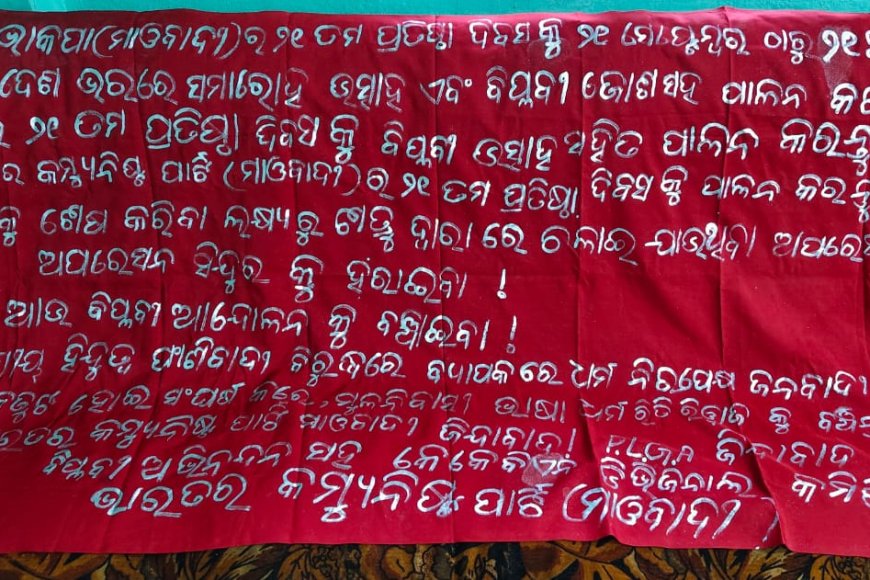 ଭାକପା(ମାଓବାଦୀ)ର ୨୧ ତମ ପ୍ରତିଷ୍ଠା ଦିବସ କୁ ୨୧ ସେପ୍ଟେମ୍ବର ଠାରୁ
ଦେଶ ଭରରେ ସମାରୋହ ଉତ୍ସାହ ଏବଂ ବିପ୍ଳବୀ ଜୋଶ ସହ ପାଳନ
୨୧ ତମ ପ୍ରତିଷ୍ଠା ଦିବସ କୁ ବିପ୍ଳବୀ ଉତ୍ସାହ ସହିତ ପାଳନ କରନ୍ତୁ
ର କମ୍ୟୁନିଷ୍ଟ ପାର୍ଟି (ମାଓବାଦୀ)ର ୨୧ ତମ ପ୍ରତିଷ୍ଠା ଦିବସ କୁ ପାଳନ କରନ୍ତୁ
କୁ ଶେଷ କରିବା ଲକ୍ଷ୍ୟ ରୁ ଶତ୍ରୁ ଦ୍ଵାରା ରେ ଚଳାଇ ଯାଉଥିବା
ଅପରେସନ ସିନ୍ଦୁର କୁ ହରାଇବା !
ଆଉ ବିପ୍ଳବୀ ଆନ୍ଦୋଳନ କୁ ବଞ୍ଚାଇବା !
ହିନ୍ଦୁତ୍ୱ ଫାଶିବାଦୀ ବିରୁଦ୍ଧରେ ବ୍ୟାପକ ରେ ଧର୍ମ ନିରପେକ୍ଷ ଜନବାଦୀ
ହୋଇ ସଂଘର୍ଷ ମୂଳନିବାସୀ ଭାଷା ଧର୍ମ ରିତି ରିବାଜ କୁ
କମ୍ୟୁନିଷ୍ଟ ପାର୍ଟି ମାଓବାଦୀ ଜିନ୍ଦାବାଦ! P.L.G.A ଜିନ୍ଦାବାଦ
ବିପ୍ଳବୀ ଅଭିନନ୍ଦନ ସହ କେକେବିଏନ ଡିଭିଜନାଲ
ଭାରତର କମ୍ୟୁନିଷ୍ଟ ପାର୍ଟି (ମାଓବାଦୀ)